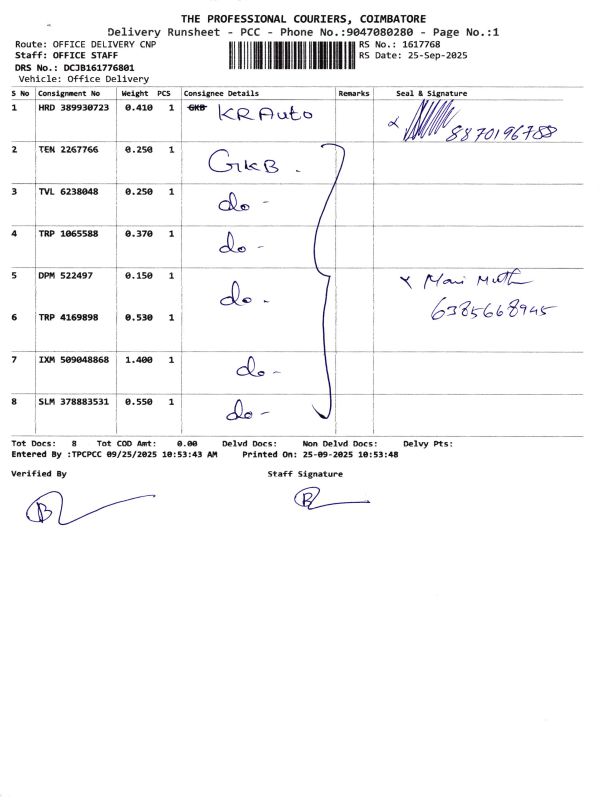 THE PROFESSIONAL COURIERS, COIMBATORE
Delivery Runsheet - PCC - Phone No.:9047080280 - Page No.:1
Route: OFFICE DELIVERY CNP RS No.: 1617768
Staff: OFFICE STAFF RS Date: 25-Sep-2025
DRS No.: DCJB161776801
Vehicle: Office Delivery
S No Consignment No Weight PCS Consignee Details Remarks Seal & Signature
1 HRD 389930723 0.410 1 GKB KR Auto
8870196788
2 TEN 2267766 0.250 1 GKB.
3 TVL 6238048 0.250 1 do -
4 TRP 1065588 0.370 1 do -
5 DPM 522497 0.150 1 do - x Mari Muth
6385668945
6 TRP 4169898 0.530 1
7 IXM 509048868 1.400 1 do -
8 SLM 378883531 0.550 1 do -
Tot Docs: 8 Tot COD Amt: 0.00 Delvd Docs: Non Delvd Docs: Delvy Pts:
Entered By :TPCPCC 09/25/2025 10:53:43 AM Printed On: 25-09-2025 10:53:48
Verified By Staff Signature